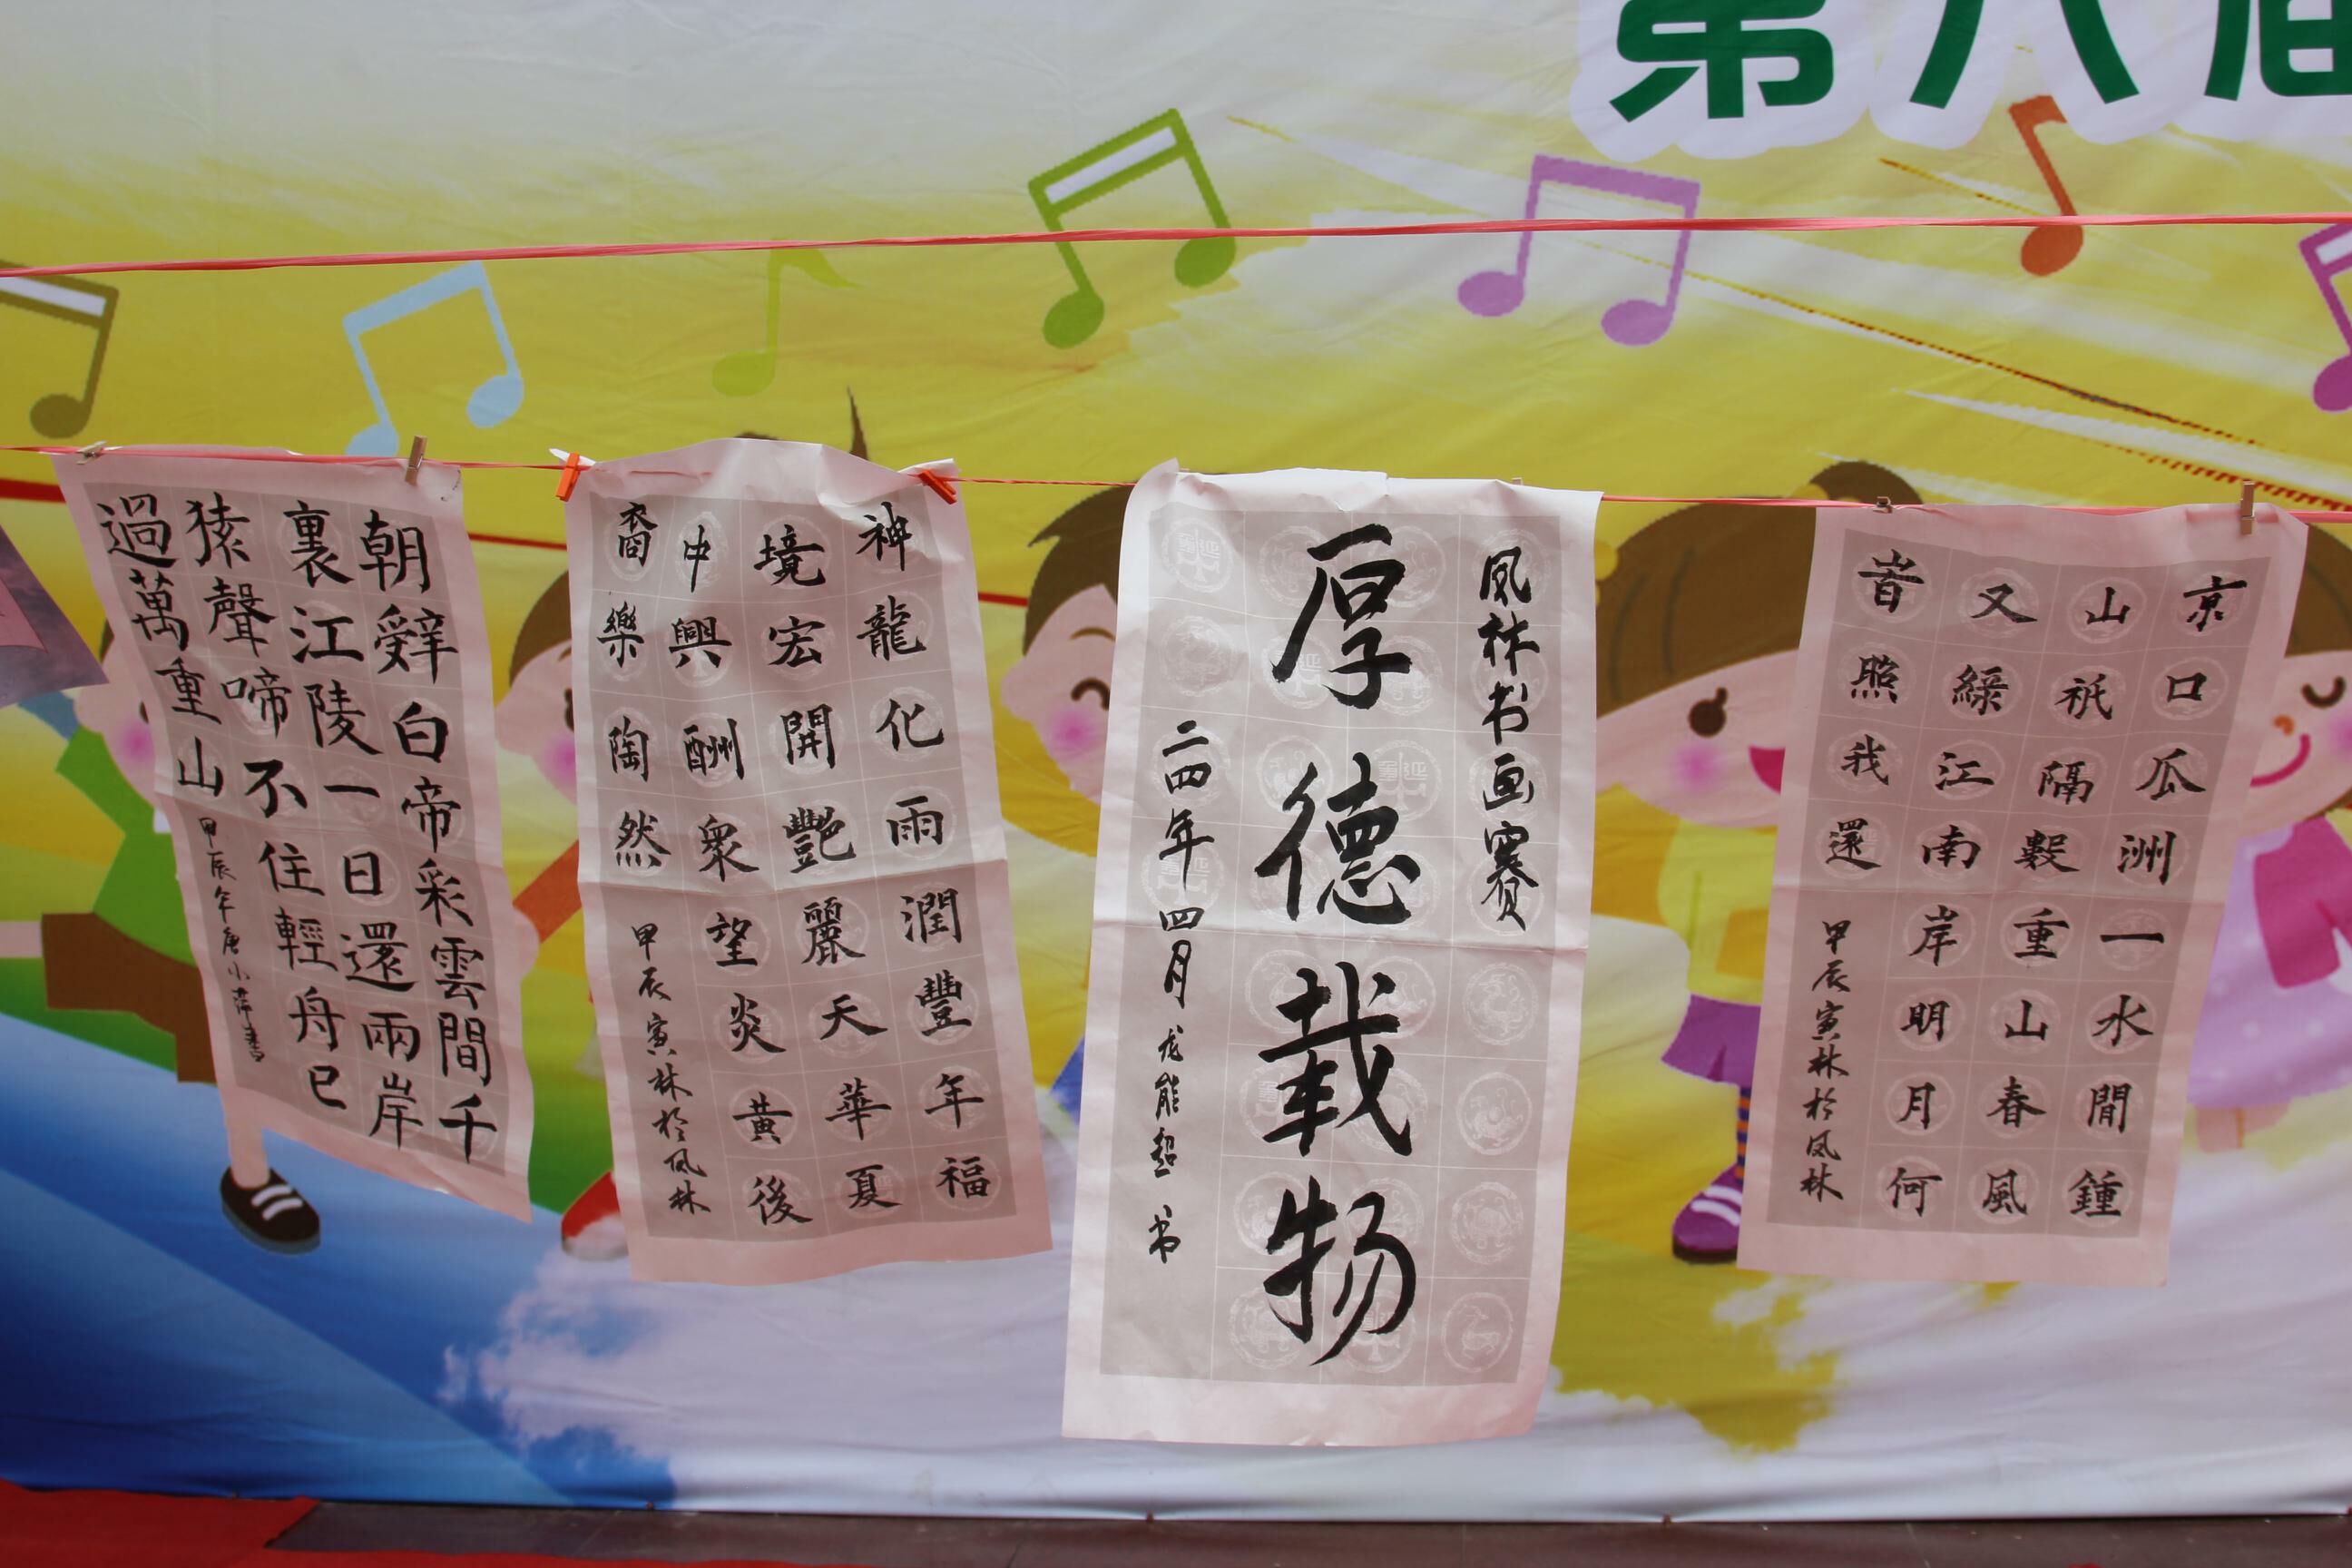 第八届
朝辭白帝彩雲間千
裏江陵一日還兩岸
猿聲啼不住輕舟已
過萬重山
甲辰年唐小萍書
神龍化雨潤豐年福
境宏開艷麗天華夏
中興酬衆望炎黃後
裔樂陶然
甲辰寅林於凤林
凤林书画赛
厚德载物
二四年四月龙能超书
京口瓜洲一水間鍾
山祇隔數重山春風
又綠江南岸明月何
旹照我還
甲辰寅林於凤林